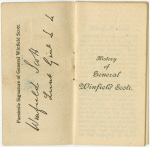 Facsimile Signature of General Winfield Scott.
Winfield Scott
History
of
General
Winfield Scott.